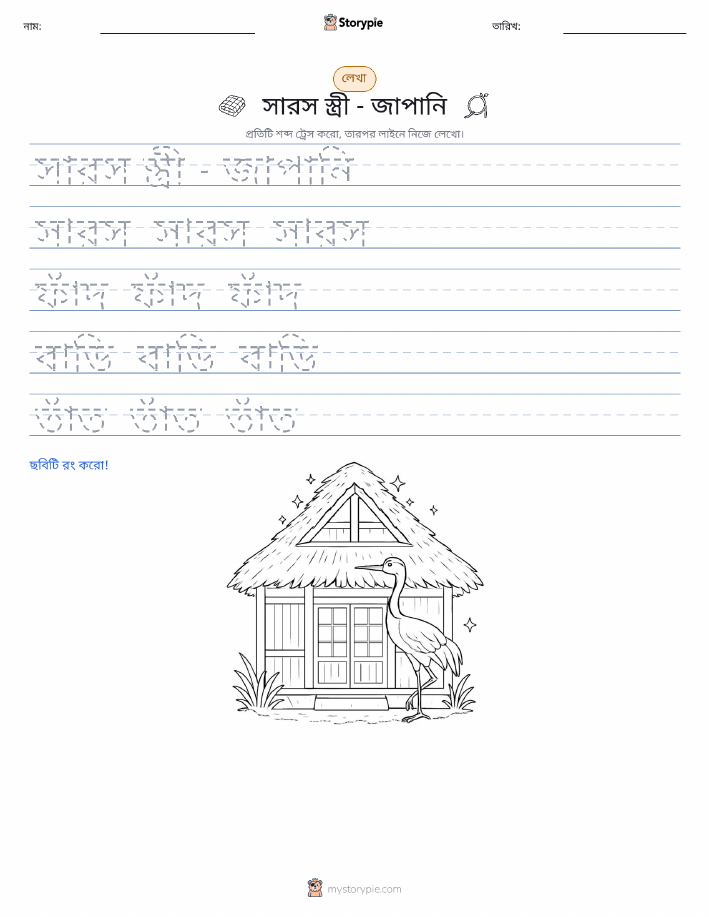 নাম:
Storypie
তারিখ:
লেখা
সারস স্ত্রী - জাপানি
প্রতিটি শব্দ ট্রেস করো, তারপর লাইনে নিজে লেখো।
সারস স্ত্রী - জাপানি
সারস সারস সারস
ফাঁদ ফাঁদ ফাঁদ
বাড়ি বাড়ি বাড়ি
তাঁত তাঁত তাঁত
ছবিটি রং করো!
mystorypie.com